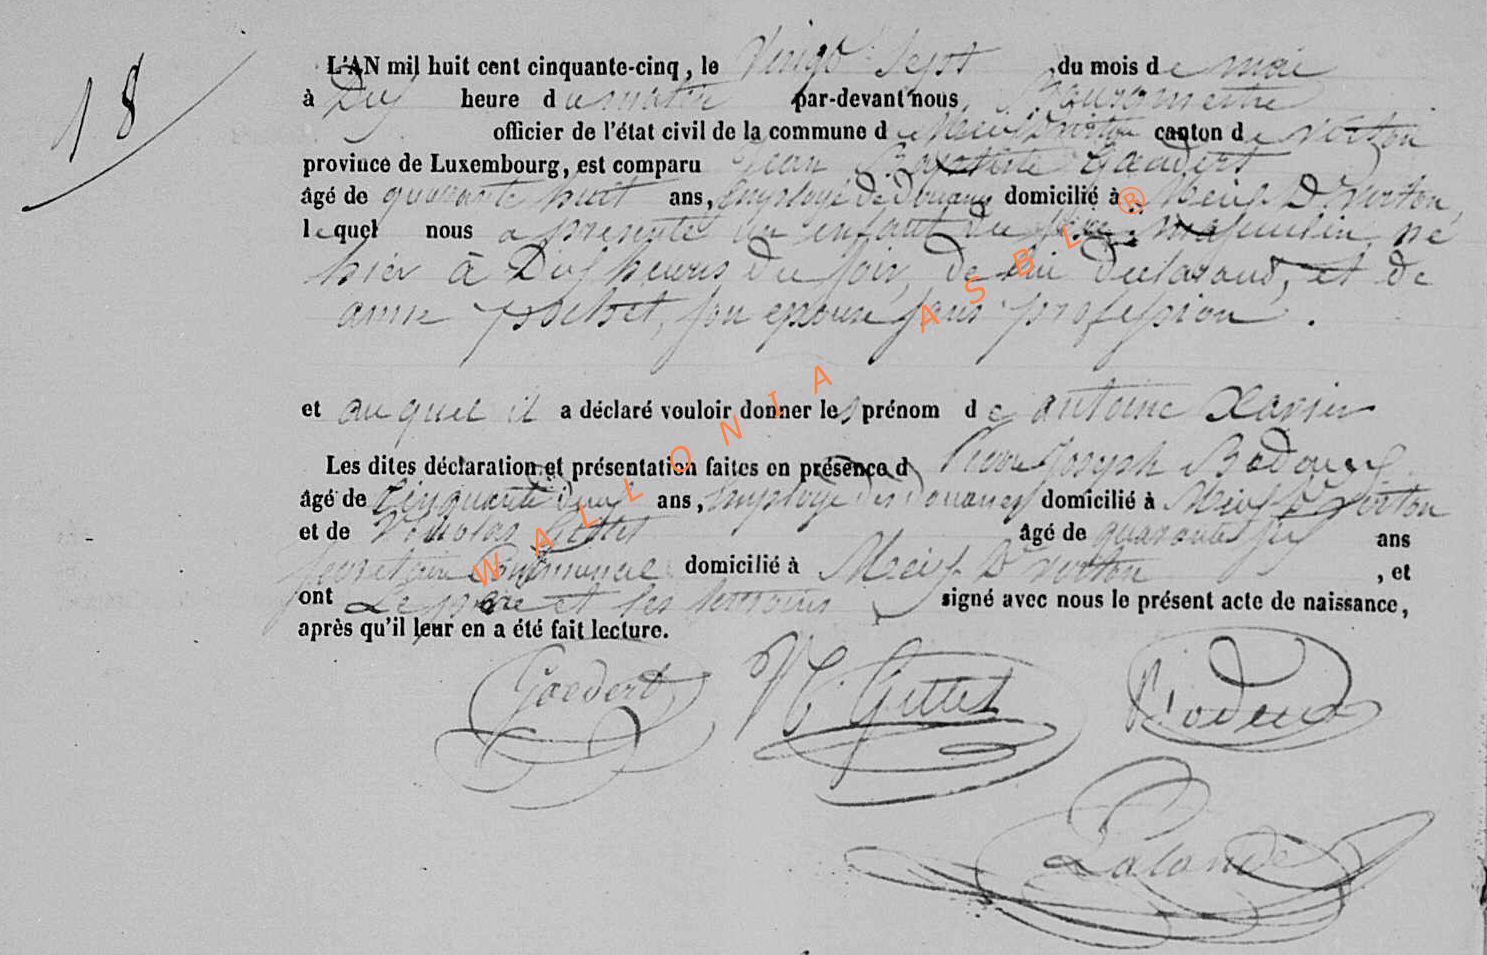 18
L'AN mil huit cent cinquante-cinq, le Vingt Sept du mois de mai
à Dix heure du matin par-devant nous, Bourgmestre
officier de l'état civil de la commune de Meix Dt virton canton de virton
province de Luxembourg, est comparu Jean Baptiste Goedert
âgé de quarante huit ans, Employé de Douanes domicilié à Meix Dt virton,
lequel nous a présenté un enfant du sexe masculin, né
hier à Dix heures du soir, de lui déclarant, et de
anne, son épouse sans profession.
et auquel il a déclaré vouloir donner les prénom de antoine Xavier
Les dites déclaration et présentation faites en présence d Pierre Joseph
âgé de Cinquante Deux ans, Employé des Douanes domicilié à Meix Dt virton
et de Nicolas Gettet âgé de quarante six ans
secrétaire Communal domicilié à Meix Dt virton, et
ont Le père et les témoins signé avec nous le présent acte de naissance,
après qu'il leur en a été fait lecture.
Goedert N. Gettet
Lalande
WALLONIA ASBL ®